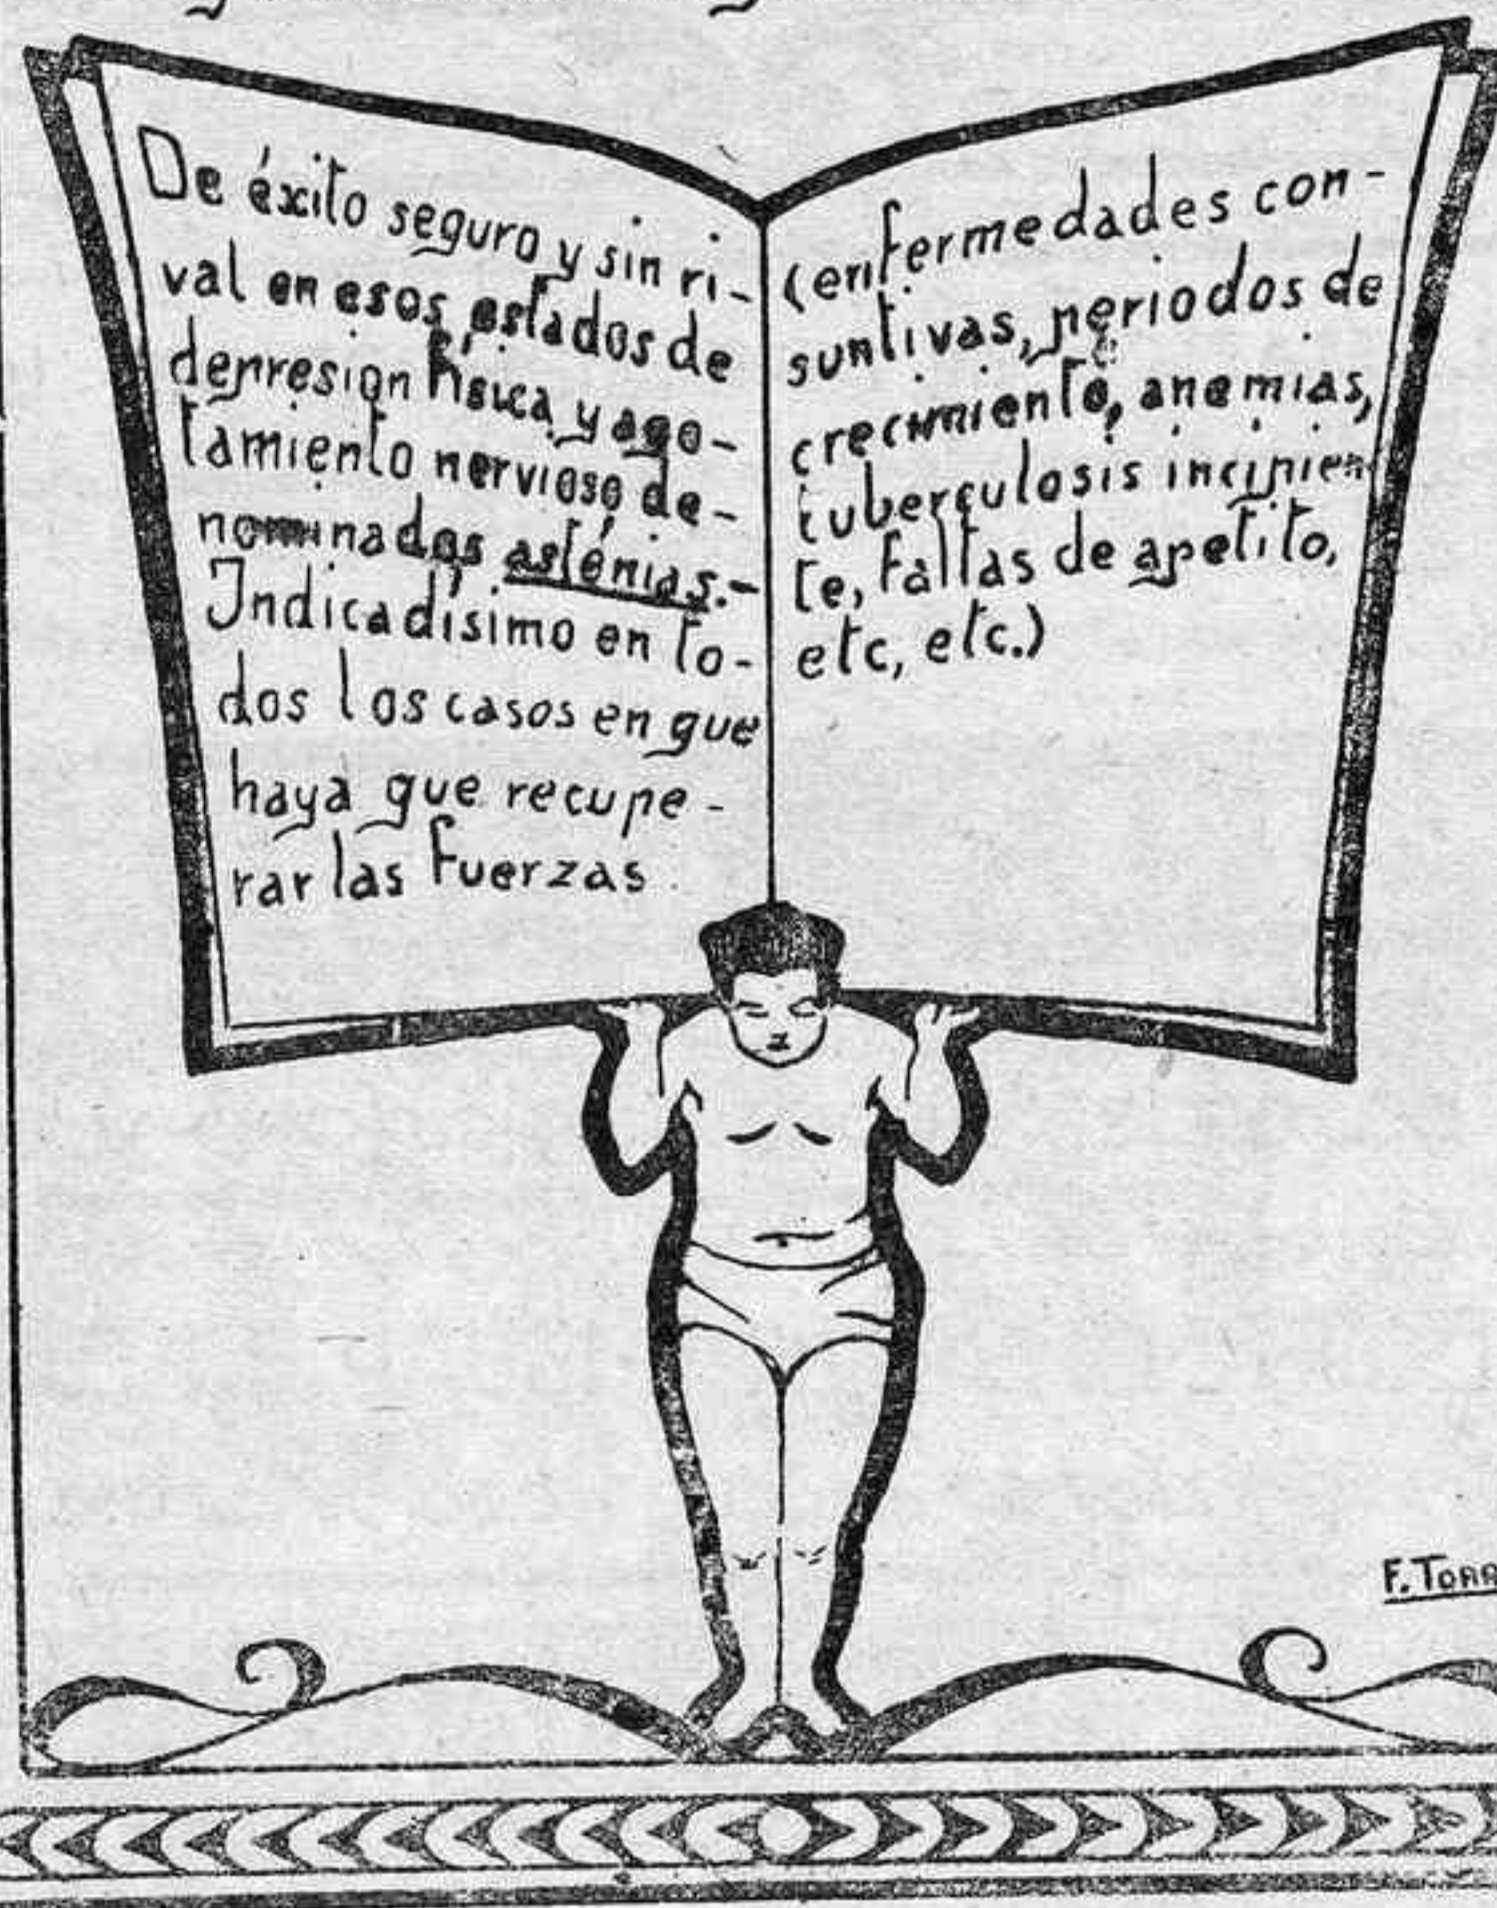 De éxito seguro y sin ri-
val en esos estados de
depresión física y ago-
tamiento nervioso de-
nominados asténias.-
Indicadísimo en to-
dos los casos en que
haya que recupe-
rar las fuerzas
(enfermedades con-
suntivas, periodos de
crecimiento, anemias,
tuberculosis incipien
te, faltas de apetito,
etc, etc.)
F. TORR